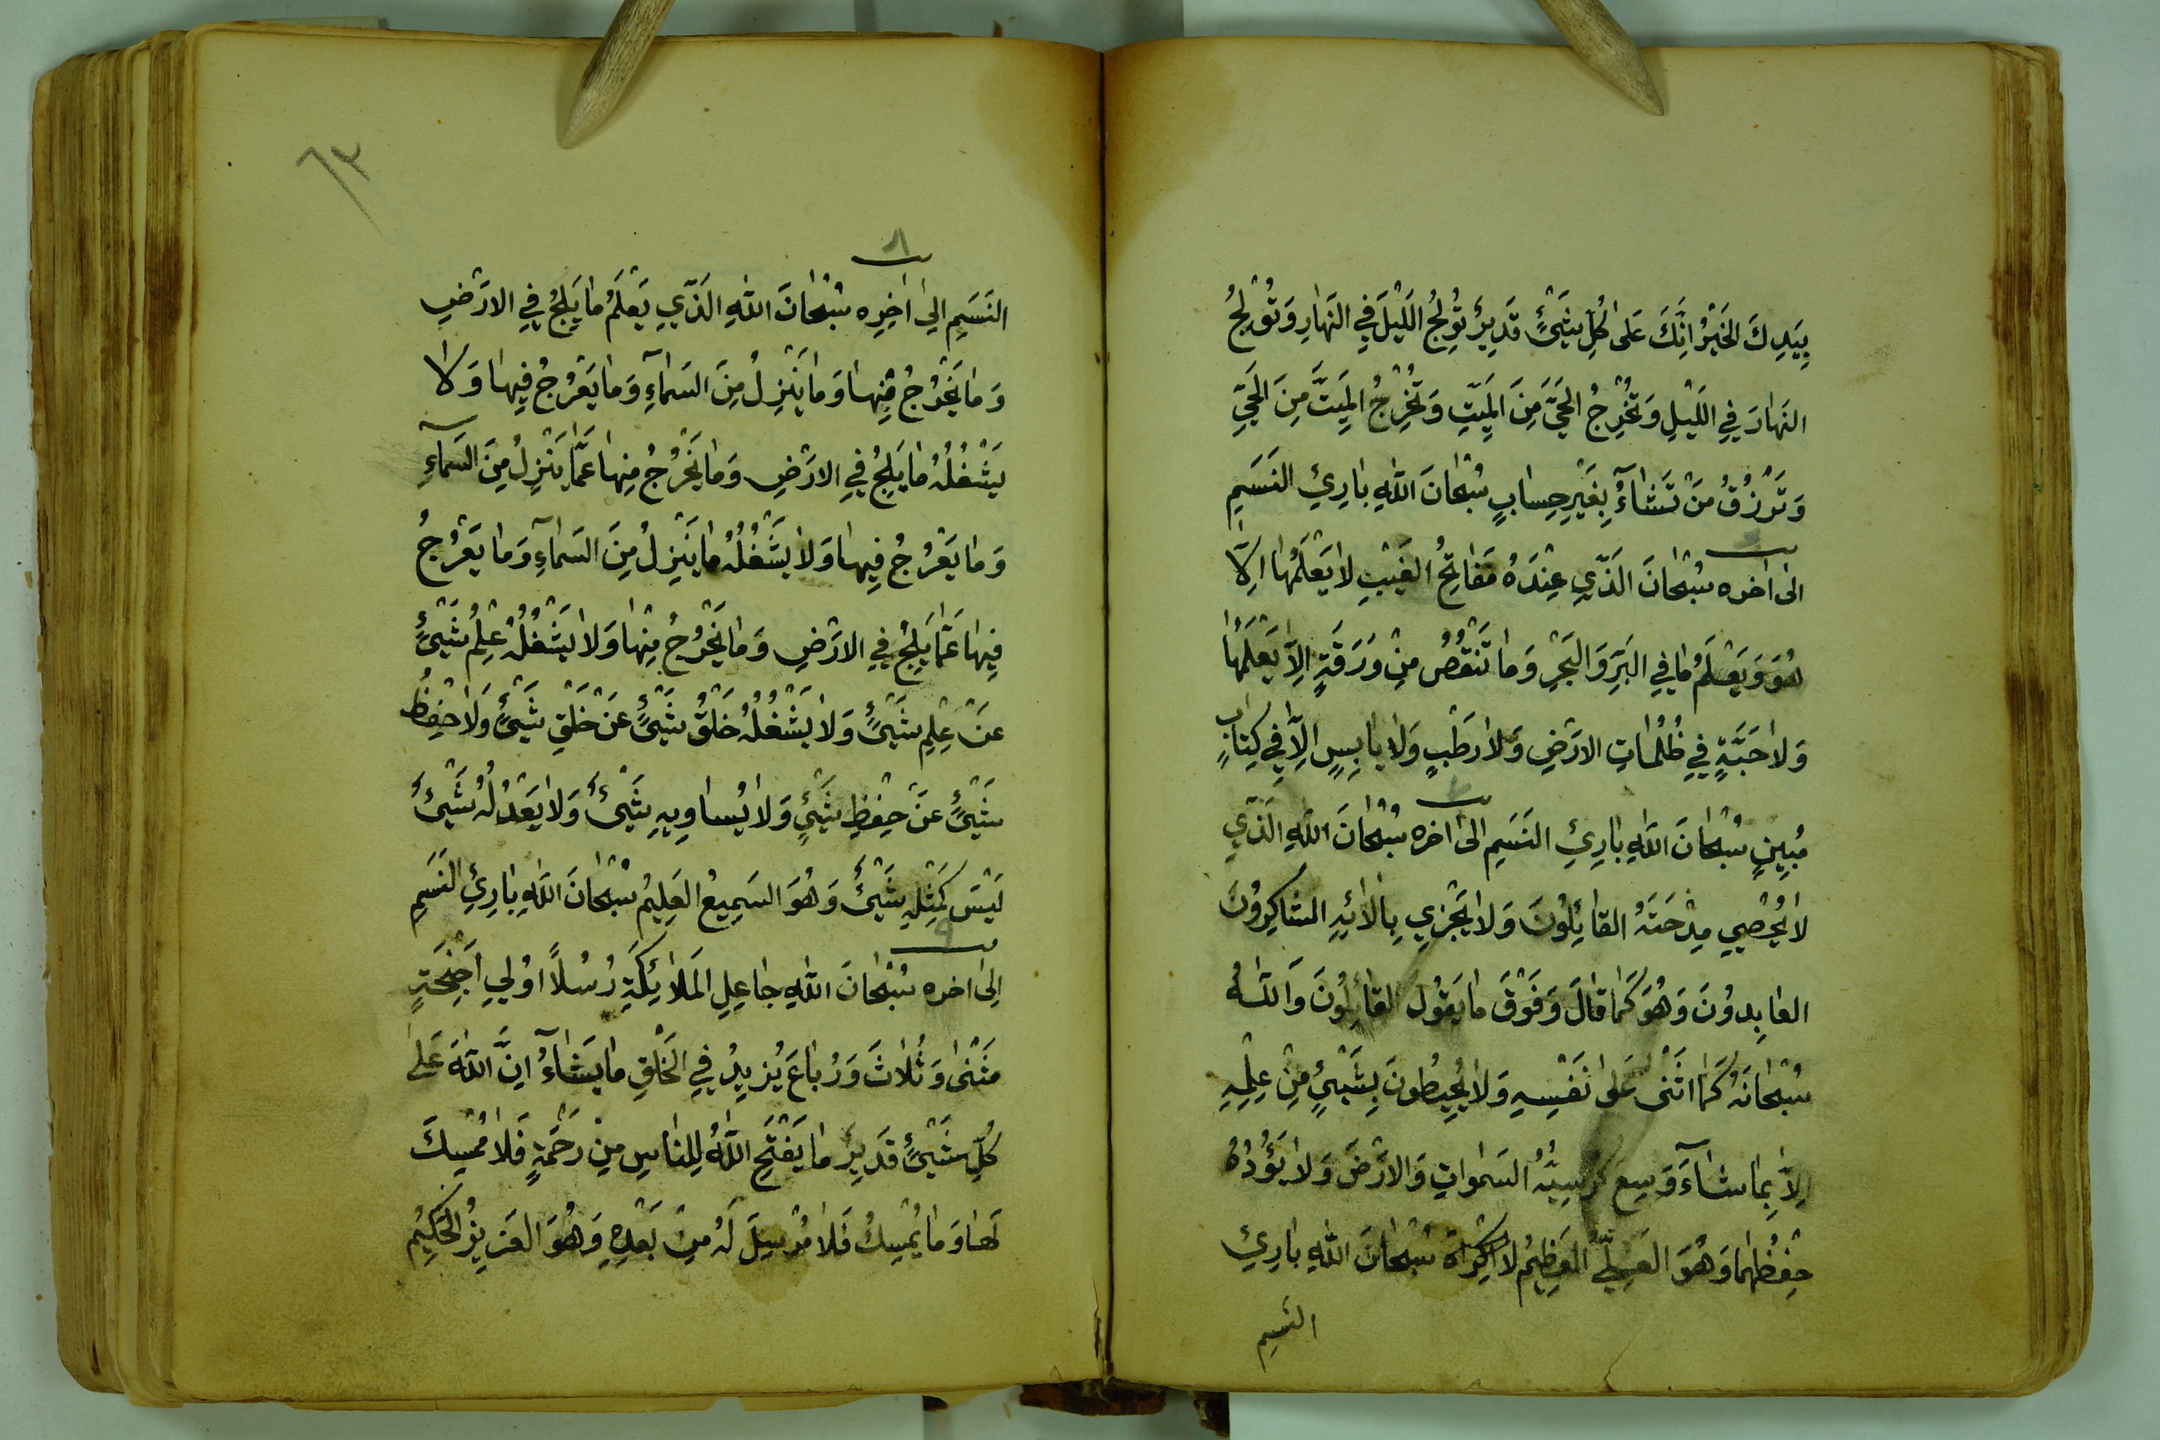 بِيَدِكَ الخَيْرُ اِنَّكَ عَلىٰ كُلِّ شَيْئٍ قَدِيرٌ تُولِجُ اللَيْلَ فِي النَهارِ وَتُولِجُ
النَهارَ فِي اللَيْلِ وَتُخْرِجُ الحَيَّ مِنَ المَيِّتِ وَتُخْرِجُ المَيِّتَ مِنَ الحَيِّ
وَتَرْزُقُ مَنْ تَشآءُ بِغَيْرِ حِسابٍ سُبْحانَ اللهِ بارِئِ النَسَمِ
الى اخره سُبْحانَ الَذّي عِنْدَهُ مَفاتِحُ الغَيْبِ لا يَعْلَمُها اِلاّ
هُوَ وَيَعْلَمُ ما فِي البَرِّ وَالبَحْرِ وَما تَنْقُصُ مِنْ وَرَقَةٍ اِلاّ يَعْلَمُها
وَلا حَبَّةٍ فِي ظُلُماتِ الارَضِ وَلا رَطْبٍ وَلا يابِسٍ اِلاّ فِي كِتابٍ
مُبِينٍ سُبْحانَ اللهِ بارِئِ النَسَمِ الى اخره سُبْحانَ اللهِ الَذّي
لا يُحْصِي مِدْحَتَهُ القائِلُونَ وَلا يَجْزِي بِالآئِهِ الشاكِرُونَ
العابِدوُنَ وَهُوَ كَما قالَ وَفَوْقَ ما يَقُولُ القائِلُونَ وَاللهُ
سُبْحانَهُ كَما اثْنى عَلىٰ نَفْسِهِ وَلا يُحِيطُونَ بِشَيْئٍ مِنْ عِلْمِهِ
اِلاّ بِما شآءَ وَسِعَ كُرْسِيُّهُ السَمواتِ وَالارْضَ وَلا يَؤُدُهُ
حِفْظُهُما وَهُوَ العَلِيُّ العَظِيمُ لا اكراه سُبْحانَ اللهِ بارِئِ
النسم
٦٣
٨
النَسَمِ الىٰ اخِرِه سُبْحانَ اللهِ الَذّي يَعْلَمُ ما يَلِجُ فِي الارَضِ
وَما يَخْرُجُ مِنْها وَما يَنْزِلُ مِنَ السَمآءِ وَما يَعْرُجُ فِيها وَلا
يَشْغُلُهُ ما يَلِجُ فِي الارَضِ وَما يَخْرُجُ مِنها عَمّا يَنْزِلُ مِنَ السَمآءِ
وَما يَعْرُجُ فِيها وَلا يَشْغُلُهُ ما يَنْزِلُ مِنَ السَمآءِ وَما يَعْرُجُ
فِيها عَمّا يَلِجُ فِي الارَضِ وَما يَخْرُجُ مِنْها وَلا يَشْغُلُهُ عِلْمُ شَيْئٍ
عَنْ عِلْمِ شَيْئٍ وَلا يَشْغُلُهُ خَلْقُ شَيْئٍ عَنْ خَلْقِ شَيْئٍ وَلا حِفْظُ
شَيْئٍ عَنْ حِفْظِ شَيْئٍ وَلا يُساوِيهِ شَيْئٌ وَلا يَعْدُلُهُ شَيْئٌ
لَيْسَ كَمِثْلِهِ شَيْئٌ وَهُوَ السَمِيعُ العَلِيمُ سُبْحانَ اللهِ بارِئِ النَسَمِ
٩
اِلى اخره سُبْحانَ اللهِ جاعِلِ المَلائِكَةِ رُسُلاً اوُلِي اَجْنِحَةٍ
مَثْنىٰ وَثُلاثَ وَرُباعَ يَزيدُ فِي الخَلْقِ ما يَشآءُ اِنَّ اللهَ عَلىٰ
كُلِّ شَيْئٍ قَدِيرٌ ما يَفْتَحِ اللهُ لِلناسِ مِنْ رَحْمَةٍ فَلا مُمْسِكَ
لَها وَما يُمْسِكْ فَلا مُرْسِلَ لَهُ مِنْ بَعْدِهِ وَهُوَ العَزيزُ الحَكِيمُ